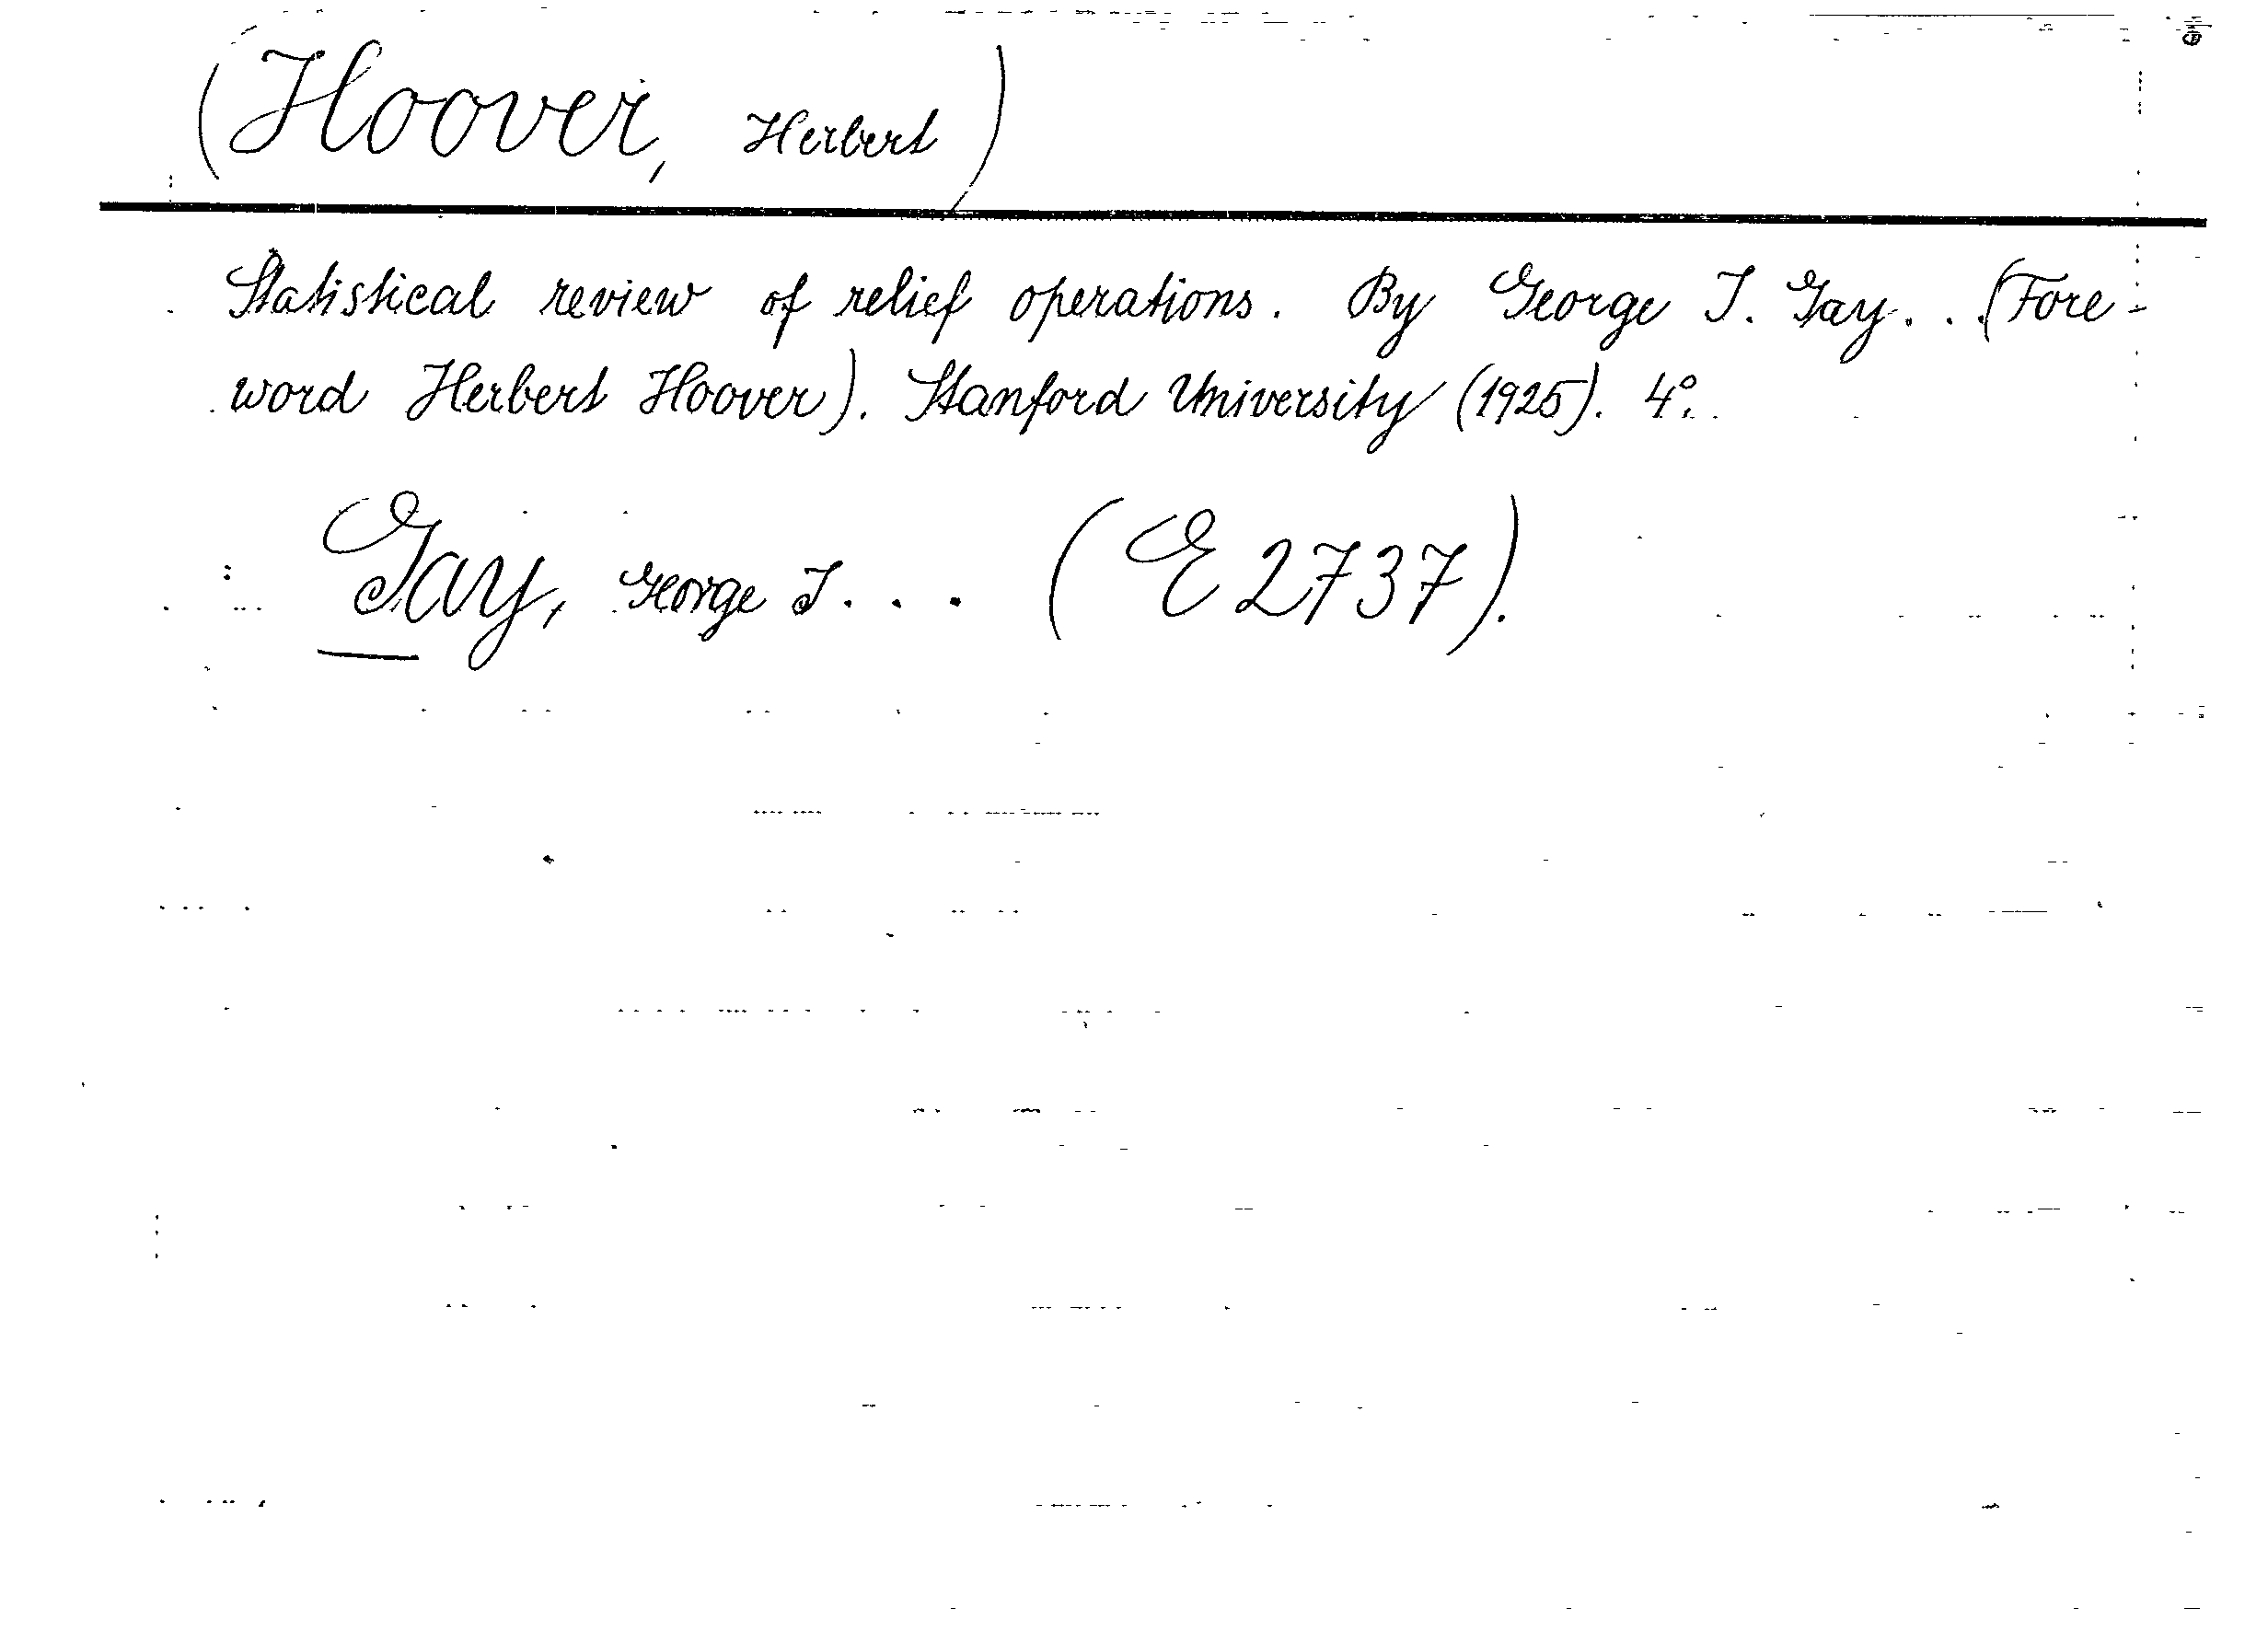 (Hoover, Herbert)
Statistical review of relief operations. By George I. Gay... (Fore-
word Herbert Hoover). Stanford University (1925). 4°.
Gay, George I... (E 2737).